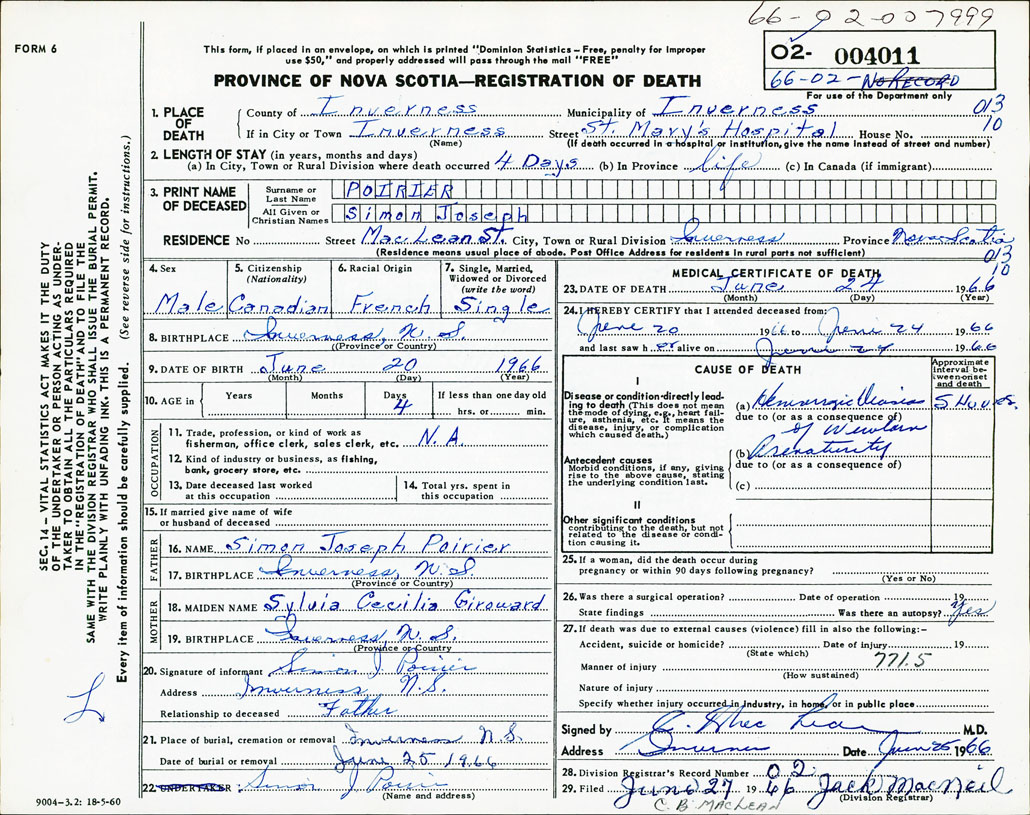 66-02-007999
FORM 6
This form, if placed in an envelope, on which is printed "Dominion Statistics – Free, penalty for improper
use $50," and properly addressed will pass through the mail "FREE"
02- 004011
PROVINCE OF NOVA SCOTIA—REGISTRATION OF DEATH
66-02- NO RECORD
For use of the Department only
1. PLACE OF DEATH
County of Inverness Municipality of Inverness 013
If in City or Town Inverness Street St. Mary's Hospital House No. 10
(Name) (If death occurred in a hospital or institution, give the name instead of street and number)
2. LENGTH OF STAY (in years, months and days)
(a) In City, Town or Rural Division where death occurred 4 Days (b) In Province life (c) In Canada (if immigrant)
3. PRINT NAME OF DECEASED
Surname or Last Name POIRIER
All Given or Christian Names Simon Joseph
RESIDENCE No Street MacLean St. City, Town or Rural Division Inverness Province Nova Scotia
(Residence means usual place of abode. Post Office Address for residents in rural parts not sufficient) 013
10
4. Sex
Male
5. Citizenship
(Nationality)
Canadian
6. Racial Origin
French
7. Single, Married, Widowed or Divorced
(write the word)
Single
8. BIRTHPLACE Inverness, N.S.
(Province or Country)
9. DATE OF BIRTH June 20 1966
(Month) (Day) (Year)
10. AGE in Years Months Days If less than one day old
4 hrs. or min.
OCCUPATION
11. Trade, profession, or kind of work as
fisherman, office clerk, sales clerk, etc. N.A.
12. Kind of industry or business, as fishing,
bank, grocery store, etc.
13. Date deceased last worked
at this occupation
14. Total yrs. spent in
this occupation
15. If married give name of wife
or husband of deceased
FATHER
16. NAME Simon Joseph Poirier
17. BIRTHPLACE Inverness, N.S.
(Province or Country)
MOTHER
18. MAIDEN NAME Sylvia Cecilia Girouard
19. BIRTHPLACE Inverness, N.S.
(Province or Country
20. Signature of informant Simon J Poirier
Address Inverness N.S.
Relationship to deceased Father
21. Place of burial, cremation or removal Inverness N.S.
Date of burial or removal June 25 1966
22. UNDERTAKER: Simon J Poirier
(Name and address)
MEDICAL CERTIFICATE OF DEATH
23. DATE OF DEATH June 24 1966
(Month) (Day) (Year)
24. I HEREBY CERTIFY that I attended deceased from:
June 20 1966 to June 24 1966
and last saw h er alive on June 24 1966
CAUSE OF DEATH
Approximate interval between onset and death
I
Disease or condition directly leading to death (This does not mean
the mode of dying, e.g., heart failure, asthenia, etc. It means the
disease, injury, or complication
which caused death.)
(a) Hemorragic Diasis 5 Hours.
due to (or as a consequence of)
of Newborn
Antecedent causes
Morbid conditions, if any, giving
rise to the above cause, stating
the underlying condition last.
(b) Prematurity
due to (or as a consequence of)
(c)
II
Other significant conditions
contributing to the death, but not
related to the disease or condition causing it.
25. If a woman, did the death occur during
pregnancy or within 90 days following pregnancy?
(Yes or No)
26. Was there a surgical operation? Date of operation 19
State findings Was there an autopsy? Yes
27. If death was due to external causes (violence) fill in also the following:–
Accident, suicide or homicide? Date of injury 19
(State which) 771.5
Manner of injury
(How sustained)
Nature of injury
Specify whether injury occurred in industry, in home, or in public place
Signed by M.D.
Address Inverness Date June 25 1966
28. Division Registrar's Record Number 02
29. Filed June 27 1966 Jack MacNeil
(Division Registrar)
C. B. MACLEAN
SEC. 14 – VITAL STATISTICS ACT MAKES IT THE DUTY
OF THE UNDERTAKER OR PERSON ACTING AS UNDER-
TAKER TO OBTAIN ALL THE PARTICULARS REQUIRED
IN THE "REGISTRATION OF DEATH" AND TO FILE THE
SAME WITH THE DIVISION REGISTRAR WHO SHALL ISSUE THE BURIAL PERMIT.
WRITE PLAINLY WITH UNFADING INK. THIS IS A PERMANENT RECORD.
Every item of information should be carefully supplied. (See reverse side for instructions.)
9004-3.2: 18-5-60